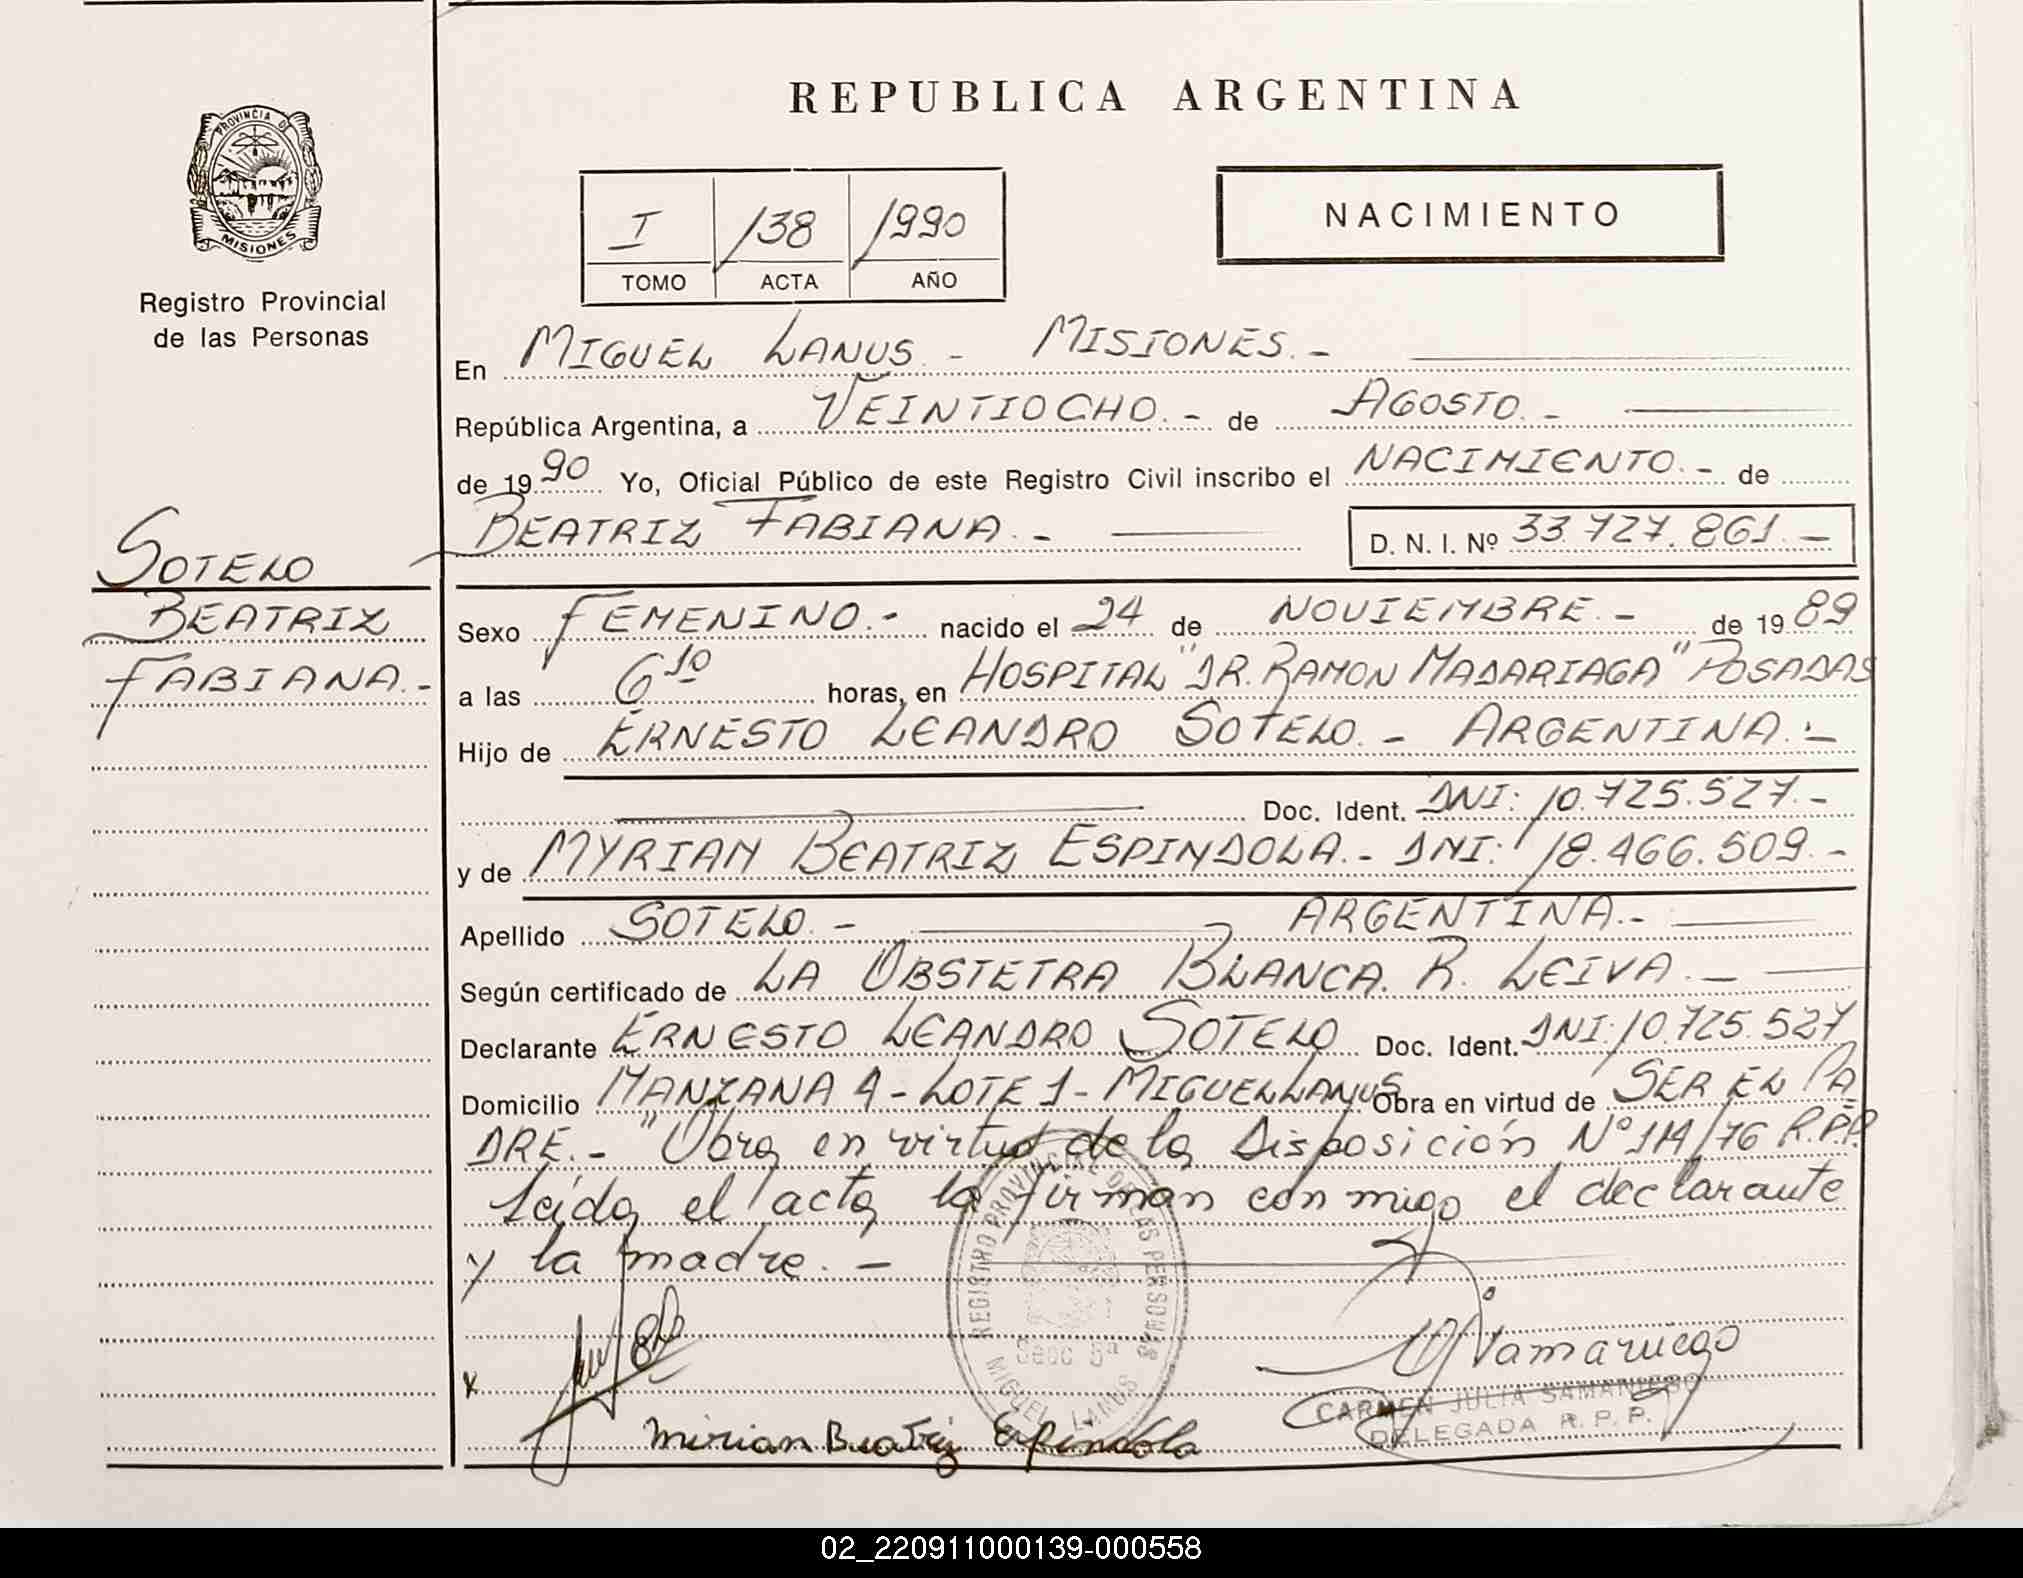 REPUBLICA ARGENTINA
PROVINCIA DE
MISIONES
Registro Provincial
de las Personas
I 138 1990
TOMO ACTA AÑO
NACIMIENTO
En MIGUEL LANUS.- MISIONES.-
República Argentina, a VEINTIOCHO.- de AGOSTO.-
de 1990 Yo, Oficial Público de este Registro Civil inscribo el NACIMIENTO.- de
BEATRIZ FABIANA.- D. N. I. Nº 33.727.861.-
SOTELO
BEATRIZ
FABIANA.-
Sexo FEMENINO.- nacido el 24 de NOVIEMBRE.- de 1989
a las 6 10 horas, en HOSPITAL "DR. RAMON MADARIAGA" POSADAS
Hijo de ERNESTO LEANDRO SOTELO.- ARGENTINA.-
Doc. Ident. DNI: 10.725.527.-
y de MYRIAM BEATRIZ ESPINDOLA.- DNI: 18.466.509.-
Apellido SOTELO.- ARGENTINA.-
Según certificado de LA OBSTETRA BLANCA. R. LEIVA.-
Declarante ERNESTO LEANDRO SOTELO Doc. Ident. DNI: 10.725.527
Domicilio MANZANA 4 - LOTE 1 - MIGUEL LANUS Obra en virtud de SER EL PA
DRE.- "Obra en virtud de la Disposición Nº 114/76 R.P.P.
Leida el acta la firman conmigo el declarante
y la madre.-
REGISTRO PROVINCIAL DE LAS PERSONAS
Secc 5ª
MIGUEL LANUS
x
CARMEN JULIA SAMANIEGO
DELEGADA R. P. P.
Mirian Beatriz Espindola
02_220911000139-000558